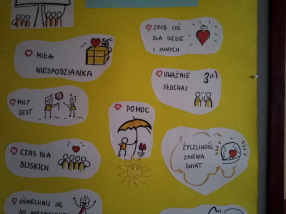 ZRÓB COŚ
DLA SIEBIE
I INNYCH
MIŁA
NIESPODZIANKA
UWAŻNIE
SŁUCHAJ
MIŁY
GEST
POMOC
CZAS DLA
BLISKICH
ŻYCZLIWOŚĆ
ZMIENIA
ŚWIAT
UŚMIECHNIJ SIĘ
DO